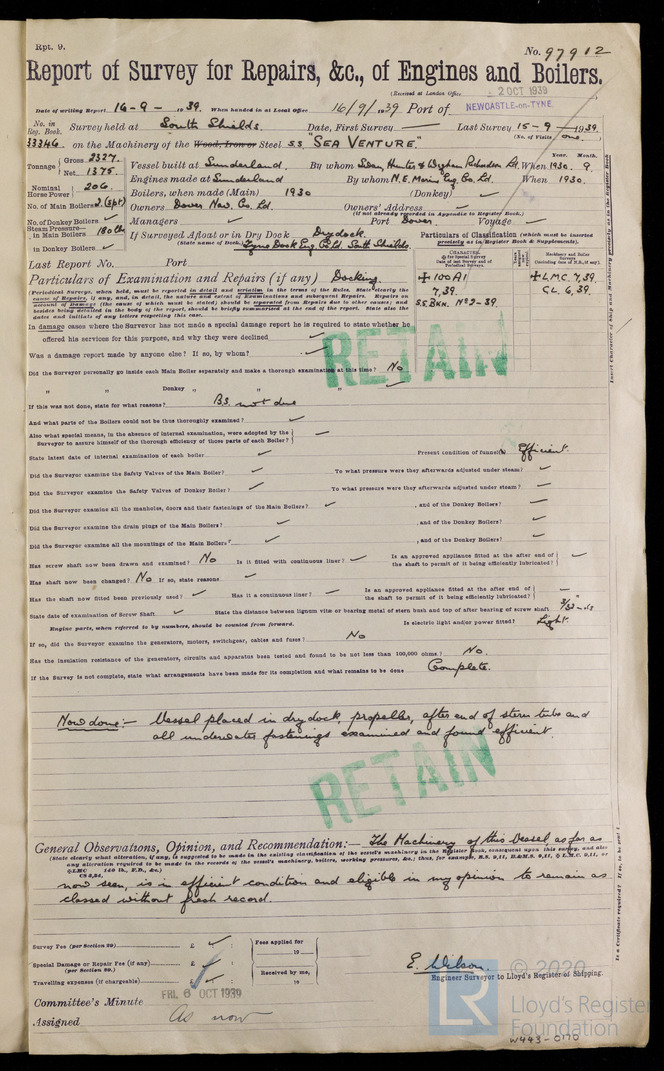 Rpt. 9.
No. 97912
Report of Survey for Repairs, &c., of Engines and Boilers.
(Received at London Office 2 OCT 1939
Date of writing Report 16-9-1939. When handed in at Local Office 16/9/1939 Port of NEWCASTLE-ON-TYNE.
No. in Reg. Book. Survey held at South Shields. Date, First Survey — Last Survey 15-9-1939.
(No. of Visits one.)
33346 on the Machinery of the Wood, Iron or Steel S.S. "SEA VENTURE."
Tonnage Gross 2327. Net 1375. Vessel built at Sunderland. By whom Swan, Hunter & Wigham Richardson Ld. When 1930. 9.
Year. Month.
Nominal Horse Power 206. Engines made at Sunderland By whom N.E. Marine Eng. Co. Ld. When 1930.
No. of Main Boilers 2 (spt) Boilers, when made (Main) 1930 (Donkey)
Owners Dover Nav. Co. Ld. Owners' Address
(if not already recorded in Appendix to Register Book.)
No. of Donkey Boilers Managers Port Dover Voyage
Steam Pressure in Main Boilers 180 lbs If Surveyed Afloat or in Dry Dock Dry dock.
(State name of Dock.) Tyne Dock Eng. Co. Ld. South Shields.
in Donkey Boilers
Particulars of Classification (which must be inserted precisely as in Register Book & Supplements).
Last Report No. Port
CHARACTER.
Machinery and Boiler Surveys
Particulars of Examination and Repairs (if any) Docking.
✠ 100 A1
7,39.
S.S. Bkn. No 2-39.
✠ L.M.C. 7,39.
CL. 6,39.
In damage cases where the Surveyor has not made a special damage report he is required to state whether he
offered his services for this purpose, and why they were declined
Was a damage report made by anyone else? If so, by whom?
RETAIN
Did the Surveyor personally go inside each Main Boiler separately and make a thorough examination at this time? No
" Donkey " " "
If this was not done, state for what reasons? B.S. not due
And what parts of the Boilers could not be thus thoroughly examined?
Also what special means, in the absence of internal examination, were adopted by the
Surveyor to assure himself of the thorough efficiency of those parts of each Boiler?
State latest date of internal examination of each boiler. Present condition of funnel(s) Efficient.
Did the Surveyor examine the Safety Valves of the Main Boiler? To what pressure were they afterwards adjusted under steam?
Did the Surveyor examine the Safety Valves of Donkey Boiler? To what pressure were they afterwards adjusted under steam?
Did the Surveyor examine all the manholes, doors and their fastenings of the Main Boilers? , and of the Donkey Boilers?
Did the Surveyor examine the drain plugs of the Main Boilers? , and of the Donkey Boilers?
Did the Surveyor examine all the mountings of the Main Boilers? , and of the Donkey Boilers?
Has screw shaft now been drawn and examined? No Is it fitted with continuous liner? Is an approved appliance fitted at the after end of the shaft to permit of it being efficiently lubricated?
Has shaft now been changed? No If so, state reasons
Has the shaft now fitted been previously used? Has it a continuous liner? Is an approved appliance fitted at the after end of the shaft to permit of it being efficiently lubricated?
State date of examination of Screw Shaft State the distance between lignum vitæ or bearing metal of stern bush and top of after bearing of screw shaft
Engine parts, when referred to by numbers, should be counted from forward. Is electric light and/or power fitted? Light.
If so, did the Surveyor examine the generators, motors, switchgear, cables and fuses? No
Has the insulation resistance of the generators, circuits and apparatus been tested and found to be not less than 100,000 ohms? No.
If the Survey is not complete, state what arrangements have been made for its completion and what remains to be done Complete.
Now done:- Vessel placed in dry dock, propeller, after end of stern tube and
all underwater fastenings examined and found efficient.
RETAIN
General Observations, Opinion, and Recommendation:— The Machinery of this Vessel, as far as
(State clearly what alteration, if any, is suggested to be made in the existing classification of the vessel's machinery in the Register Book, consequent upon this survey, and also
any alteration required to be made in the records of the vessel's machinery, boilers, working pressures, &c.; thus, for example, B.S. 9,11, B.&M.S. 9,11, or ✠ L.M.C. 9,11, or
now seen, is in efficient condition and eligible in my opinion to remain as
classed without fresh record.
Survey Fee (per Section 29) £ : :
Fees applied for 19
Special Damage or Repair Fee (if any) £ : :
(per Section 29.)
Received by me, 19
Travelling expenses (if chargeable) £ : :
E. Wilson.
Engineer Surveyor to Lloyd's Register of Shipping.
Committee's Minute FRI. 6 OCT 1939
Assigned As now
© 2020
LR Lloyd's Register Foundation
W443-0170